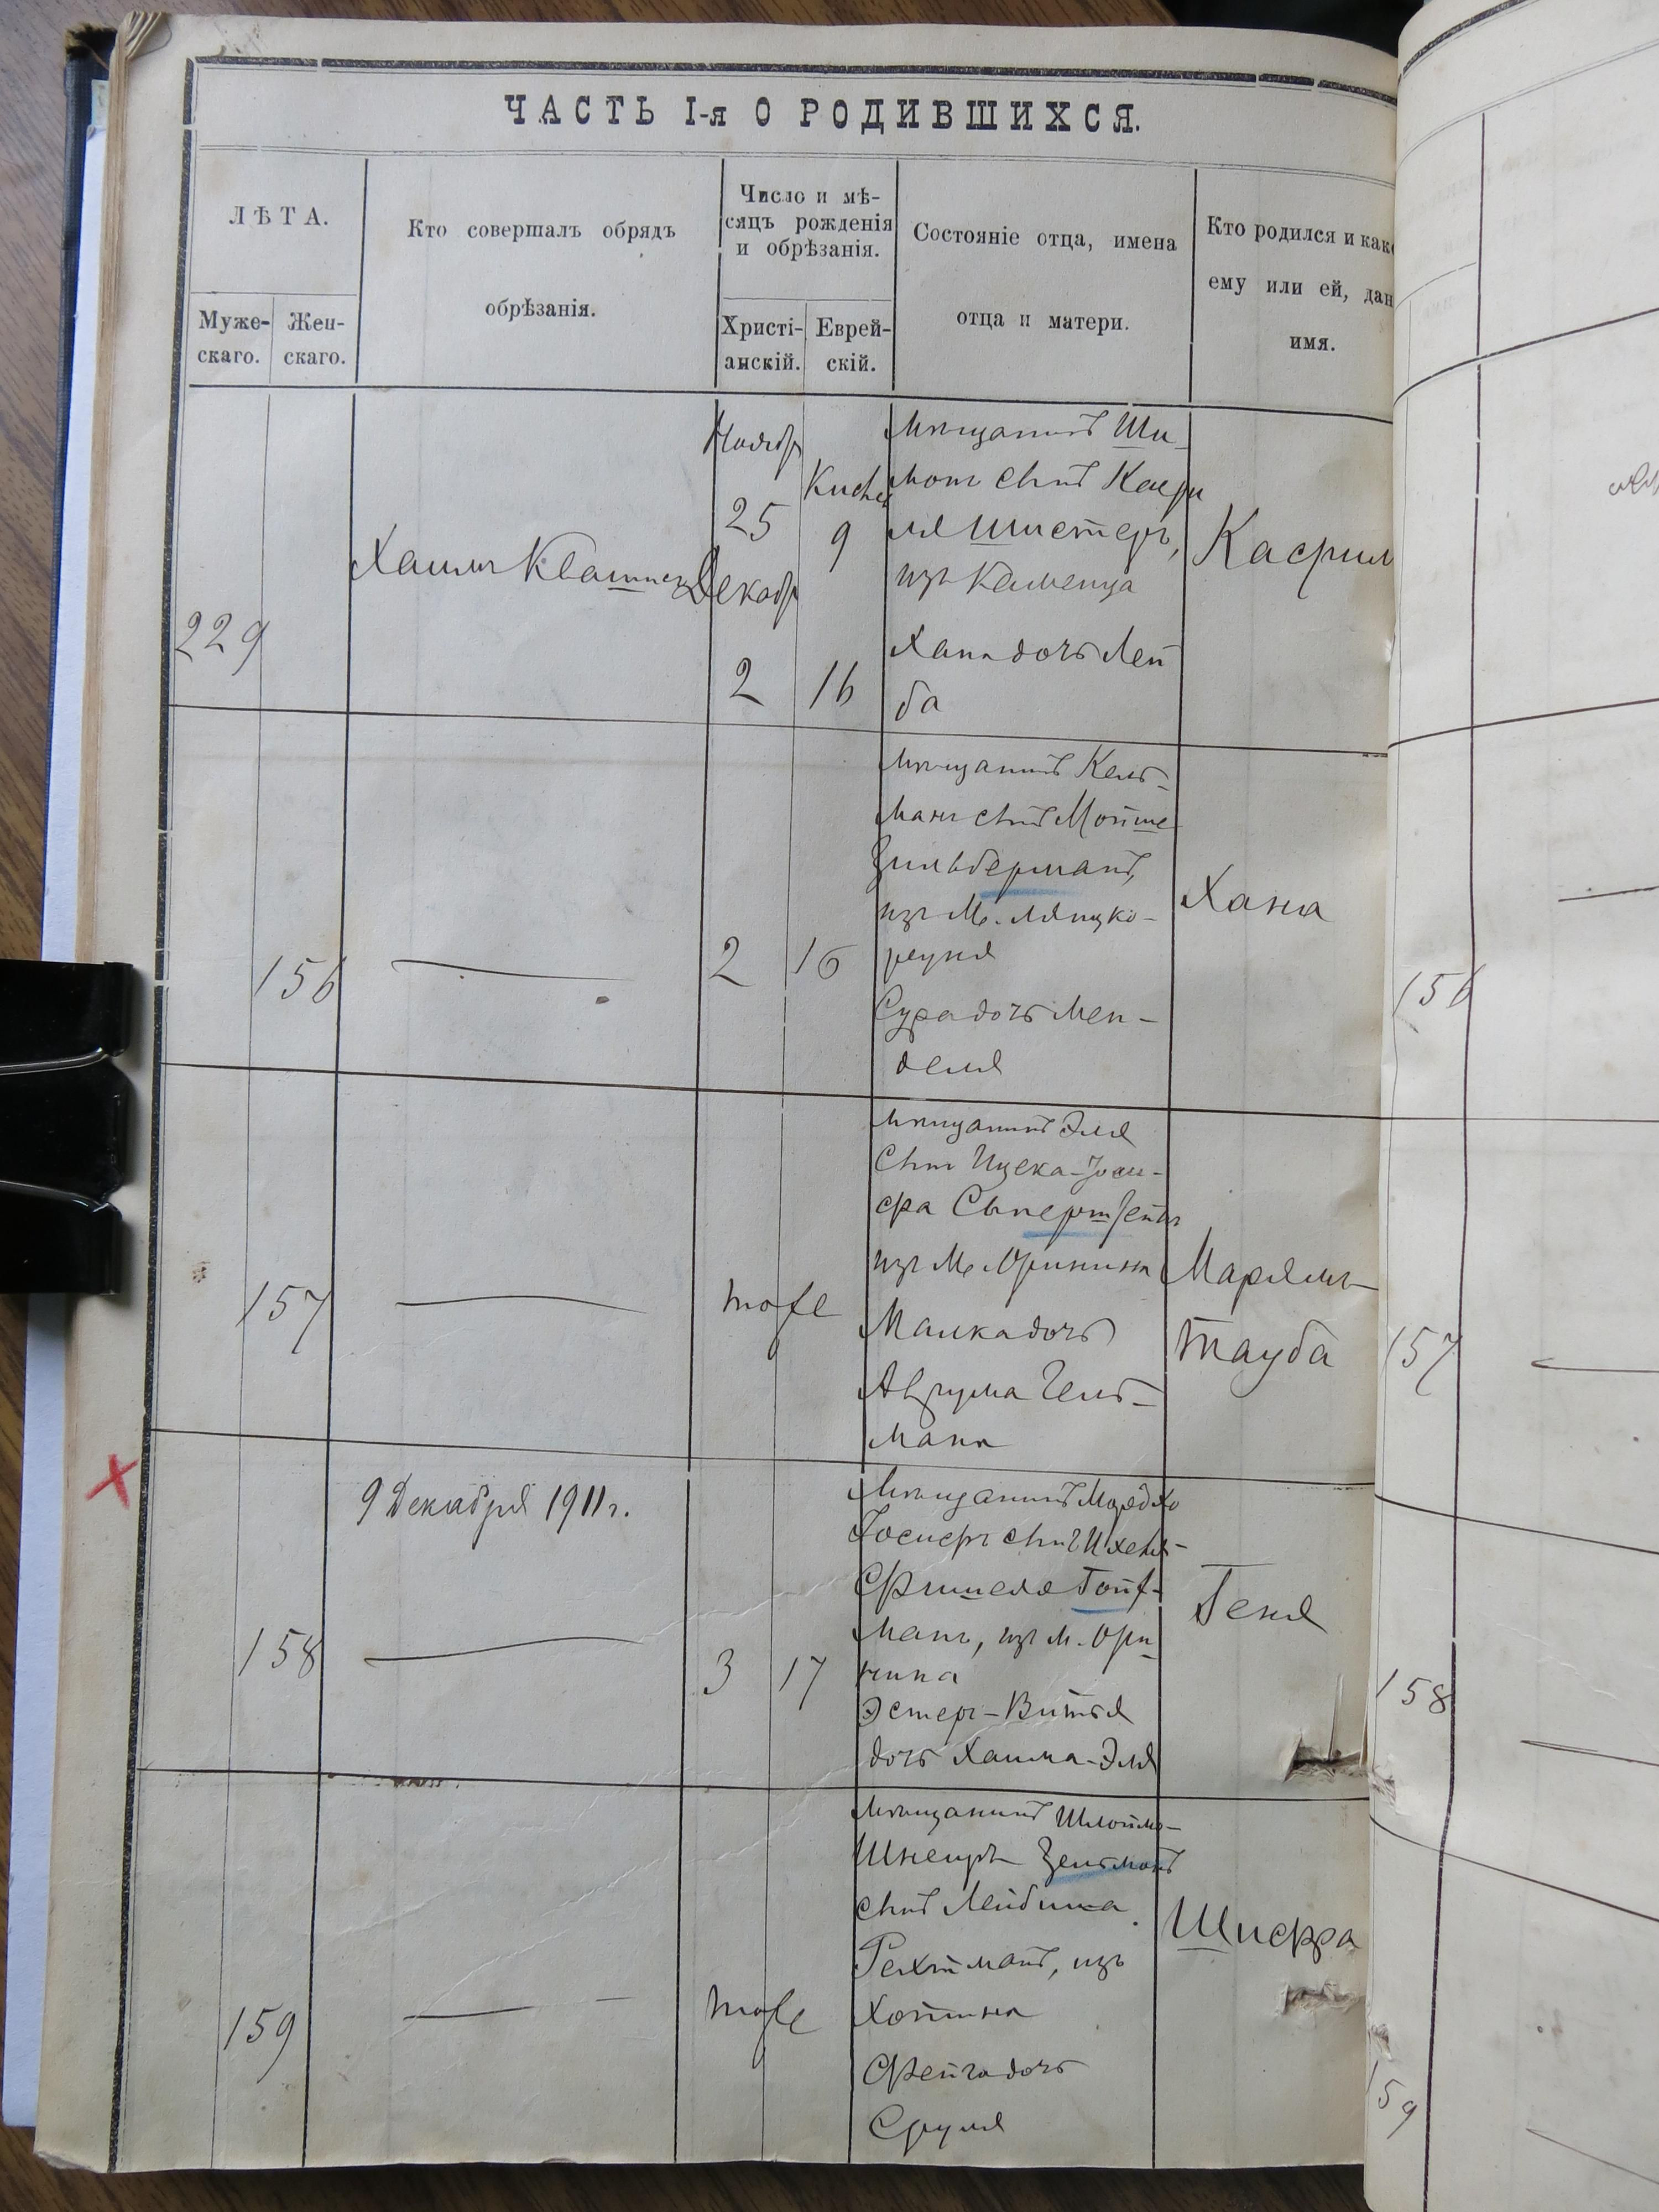 ЧАСТЬ I-я О РОДИВШИХСЯ.
ЛѢТА.
Муже-
скаго.
Жен-
скаго.
Кто совершалъ обрядъ
обрѣзанія.
Число и мѣ-
сяцъ рожденія
и обрѣзанія.
Христі-
анскій.
Еврей-
скій.
Состояніе отца, имена
отца и матери.
Кто родился и как
ему или ей, дан
имя.
229
Хаимъ
Ноябр
25
Декабр
2
9
16
мѣщанинъ Ши
сынъ Касри
ля
изъ Каменца
Хана дочь Лей
ба
Касрил
156
2
16
мѣщанинъ Кель-
манъ сынъ Мойше
Зильберманъ,
изъ м. Лянцко-
руня
Сура дочь Мен-
деля
Хана
156
157
тоже
мѣщанинъ Эля
сынъ Ицека-Іоси-
фа
изъ м. Оринина
Малка дочь
Аврума Гель-
мана
Марьямъ-
Тауба
157
9 Декабря 1911 г.
158
3
17
мѣщанинъ Мордко
Іосифъ сынъ Ихеля-
Фишеля Гойх-
манъ, изъ м. Ори-
нина
Эстеръ-Витья
дочь Хаима-Эля
Геня
158
159
тоже
мѣщанинъ Шлойма-
Шнеиръ Зельманъ
сынъ Лейбиша
Рехтманъ, изъ
Хотина
Фейга дочь
Сруля
Шифра
159